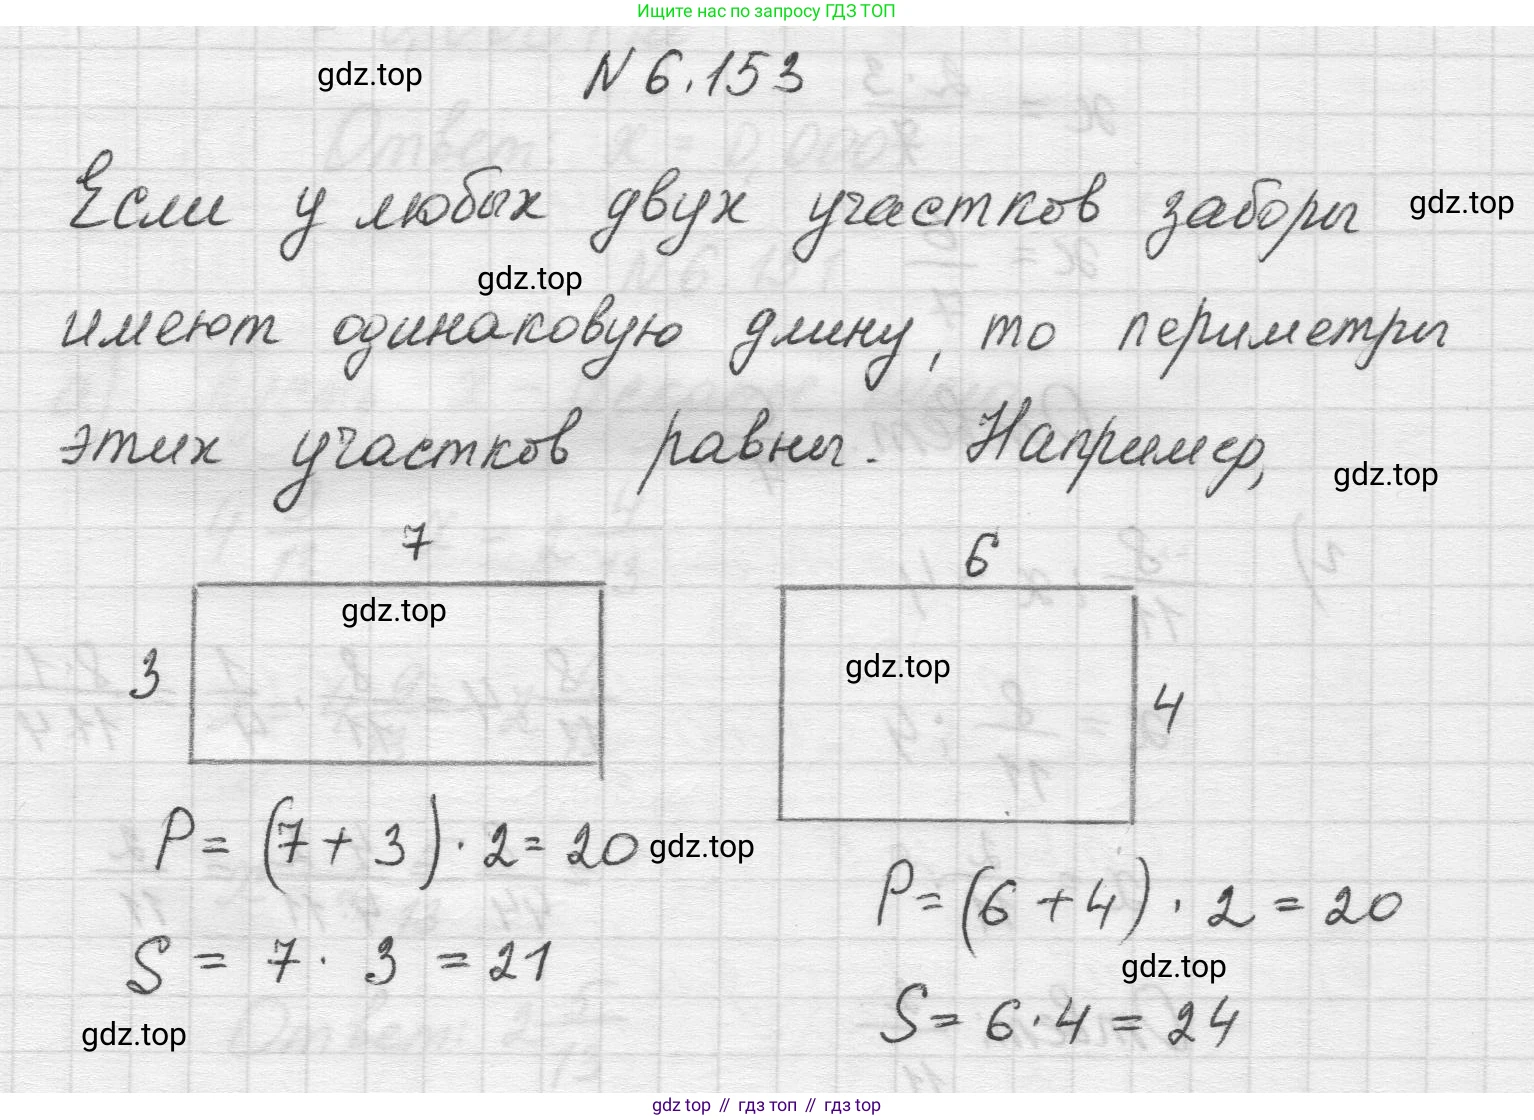 Ищите нас по запросу ГДЗ ТОП
gdz.top
N 6.153
Если у любых двух участков заборы
gdz.top
gdz.top
имеют одинаковую длину, то периметры
этих участков равны. Например,
gdz.top
7
6
gdz.top
3
gdz.top
4
P = (7 + 3) · 2 = 20
gdz.top
P = (6 + 4) · 2 = 20
S = 7 · 3 = 21
gdz.top
S = 6 · 4 = 24
gdz.top
gdz top // гдз топ // гдз top